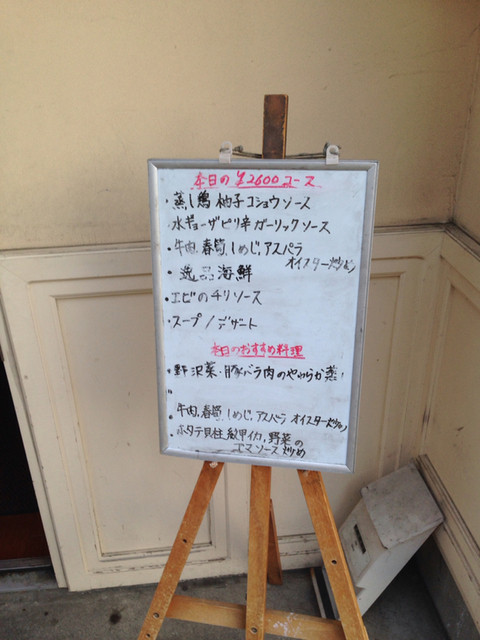 本日の ¥2600コース
・蒸し鶏 柚子コショウソース
・水ギョーザピリ辛ガーリックソース
・牛肉,春筍,しめじ,アスパラ
オイスター炒め
・逸品海鮮
・エビのチリソース
・スープ/デザート
本日のおすすめ料理
・野沢菜・豚バラ肉のやわらか蒸し
・
・牛肉,春筍,しめじ,アスパラ オイスター炒め
・ホタテ貝柱,紋甲イカ,野菜の
ソース炒め